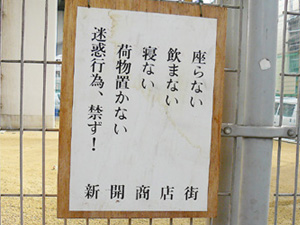 座らない
飲まない
寝ない
荷物置かない
迷惑行為、禁ず!
新開商店街